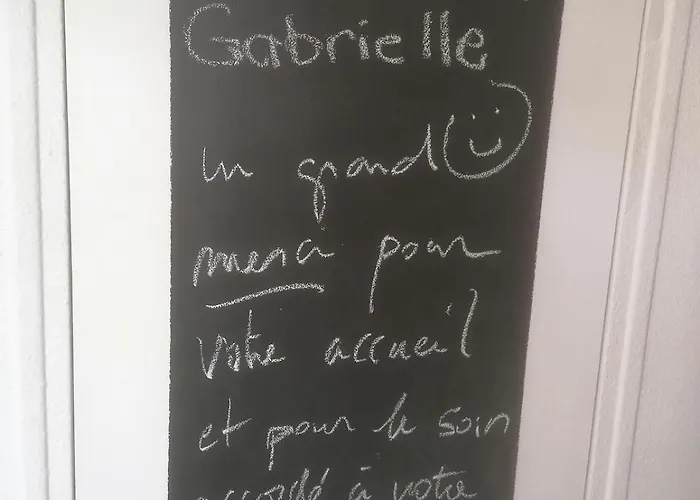 Gabrielle
un grand
merci pour
votre accueil
et pour le soin
accordé à votre